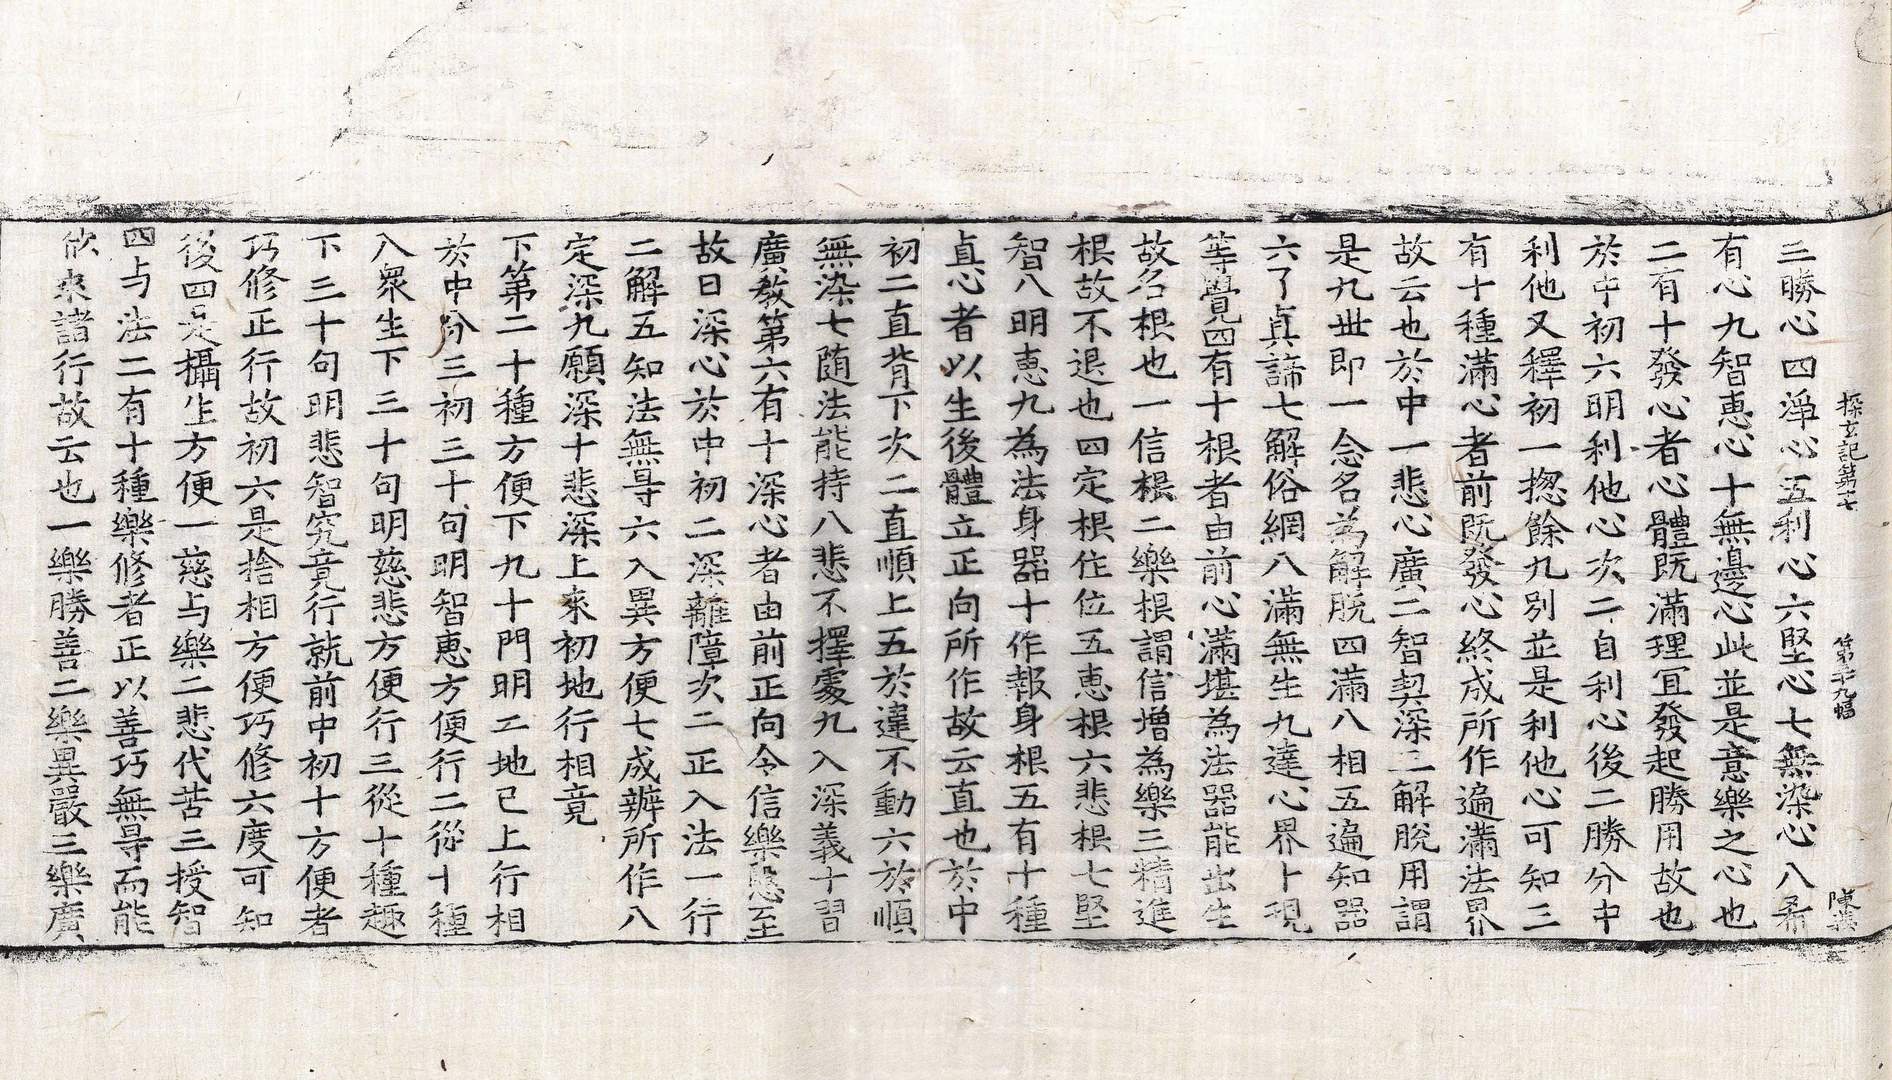 探玄記第十七 第二十九幅
三勝心四淨心五利心六堅心七無染心八希
有心九智惠心十無邊心此並是意樂之心也
二有十發心者心體既滿理冝發起勝用故也
於中初六明利他心次二自利心後二勝分中
利他又釋初一揔餘九別並是利他心可知三
有十種滿心者前既發心終成所作遍滿法界
故云也於中一悲心廣二智契深三解脫用謂
是九世即一念名為解脫四滿八相五遍知器
六了真諦七解俗網八滿無生九達心界十現
等覺四有十根者由前心滿堪為法器能出生
故名根也一信根二樂根謂信增為樂三精進
根故不退也四定根住位五惠根六悲根七堅
智八明惠九為法身器十作報身根五有十種
直心者以生後體立正向所作故云直也於中
初二直背下次二直順上五於違不動六於順
無染七随法能持八悲不擇處九入深義十習
廣教第六有十深心者由前正向令信樂懇至
故曰深心於中初二深離障次二正入法一行
二解五知法無㝵六入異方便七成辨所作八
定深九願深十悲深上來初地行相竟
下第二十種方便下九十門明二地已上行相
於中分三初三十句明智惠方便行二從十種
入衆生下三十句明慈悲方便行三從十種趣
下三十句明悲智究竟行就前中初十方便者
巧修正行故初六是捨相方便巧修六度可知
後四是攝生方便一慈与樂二悲代苦三授智
四与法二有十種樂修者正以善巧無㝵而能
欣來諸行故云也一樂勝善二樂異嚴三樂廣